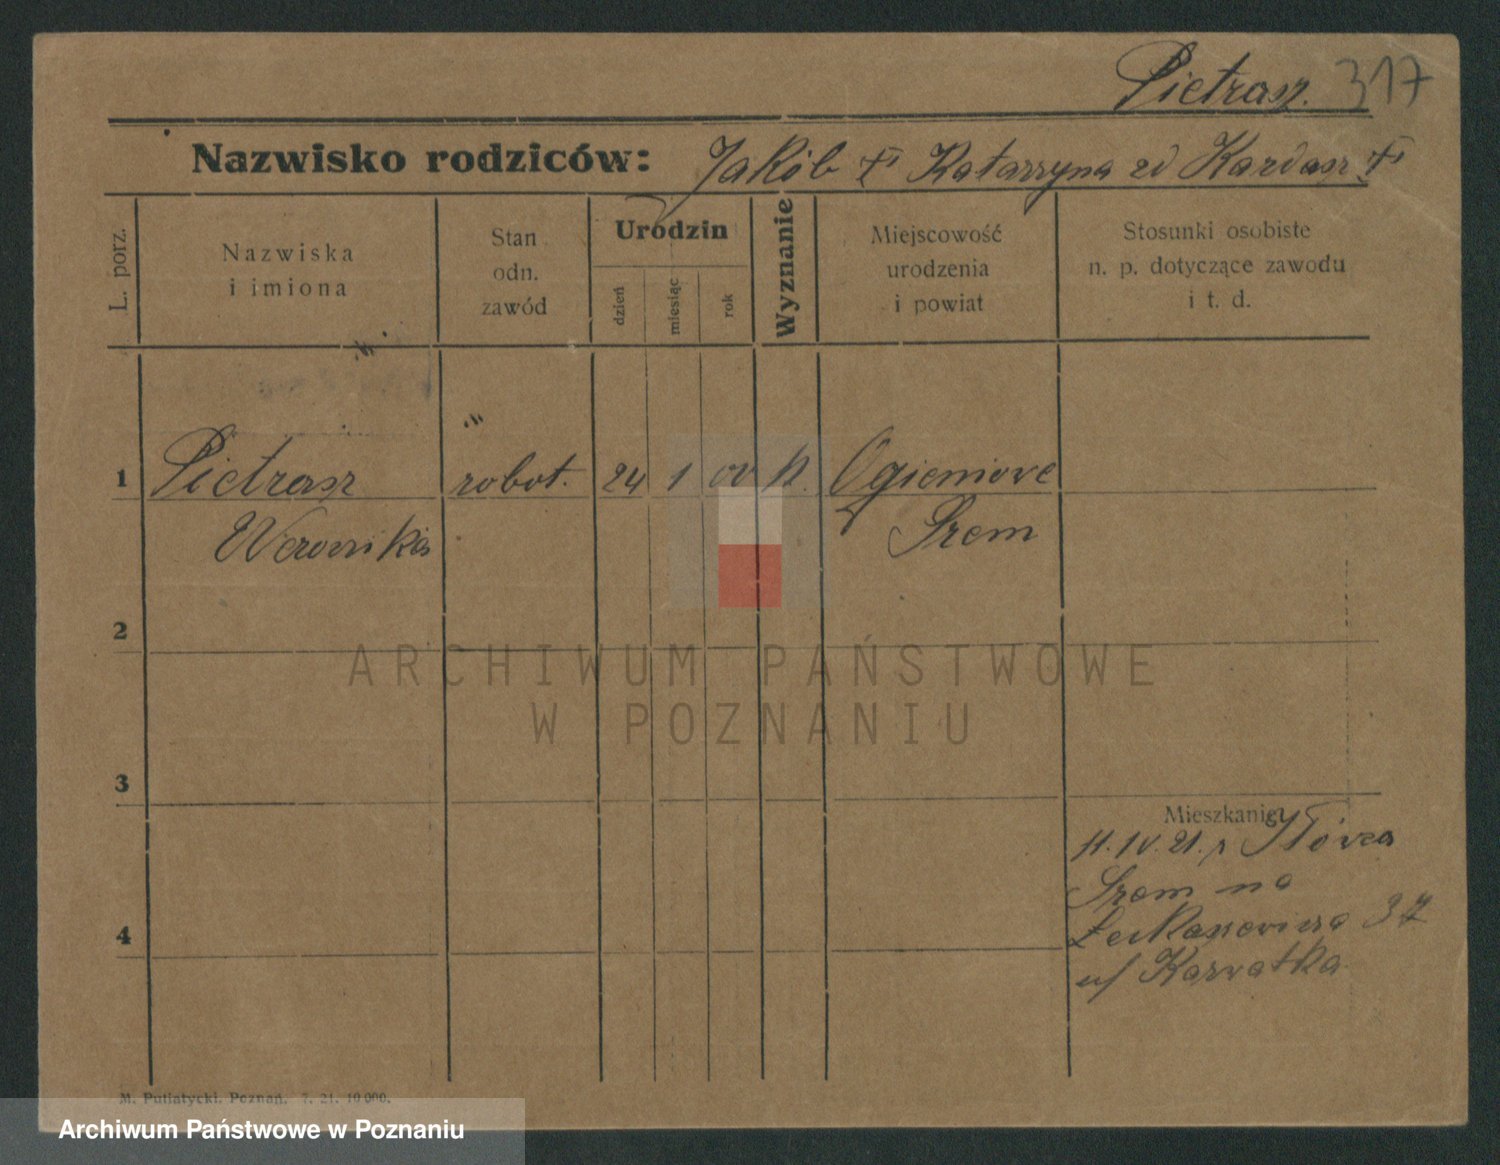 Pietrasz. 317
Nazwisko rodziców: Jakób † Katarzyna zd Kardasz †
L. porz.
Nazwiska
i imiona
Stan
odn.
zawód
Urodzin
dzień
miesiąc
rok
Wyznanie
Miejscowość
urodzenia
i powiat
Stosunki osobiste
n. p. dotyczące zawodu
i t. d.
1 Pietrasz robot. 24 1 00 k. Ogieniowe
Weronika Śrem
2
3
Mieszkanie
11. IV. 21. z
Śrem na
37
4
u/ Karwatka
M. Putiatycki. Poznań. 7. 21. 10 000.
ARCHIWUM PAŃSTWOWE
W POZNANIU
Archiwum Państwowe w Poznaniu